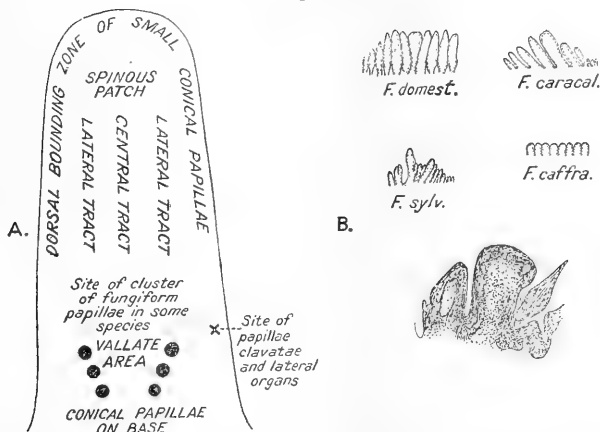 DORSAL BOUNDING ZONE OF SMALL CONICAL PAPILLAE
SPINOUS
PATCH
LATERAL TRACT
CENTRAL TRACT
LATERAL TRACT
A.
Site of cluster
of fungiform
papillae in some
species
VALLATE
AREA
Site of
papillae
clavatae
and lateral
organs
CONICAL PAPILLAE
ON BASE
F. domest.
F. caracal.
F. sylv.
F. caffra.
B.